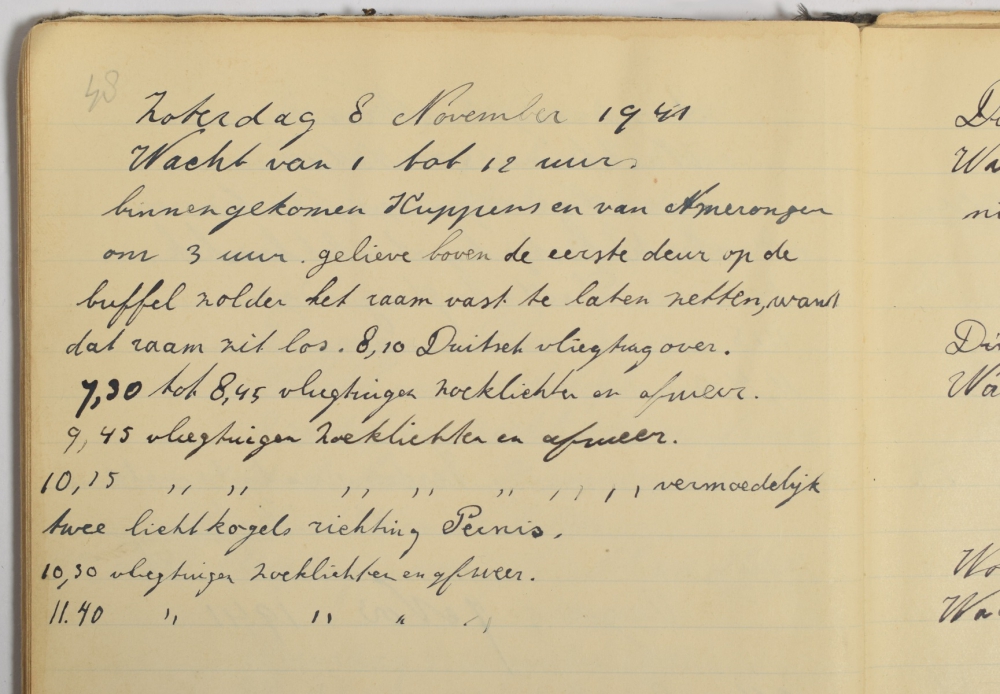 48
Zaterdag 8 November 1941
Wacht van 1 tot 12 uur
binnengekomen Kuppens en van Ameronger
om 3 uur. gelieve boven de eerste deur op de
buffel zolder het raam vast te laten zetten, want
dat raam zit los. 8,10 Duitsch vliegtug over.
7,30 tot 8,45 vliegtuigen zoeklichten en afweer.
9,45 vliegtuigen zoeklichten en afweer.
10,15 ,, ,, ,, ,, ,, ,, ,, vermoedelijk
twee lichtkogels richting Pernis.
10,30 vliegtuigen zoeklichten en afweer.
11.40 ,, ,, ,, ,,
Wa
ni
Wa
Wo
Wa